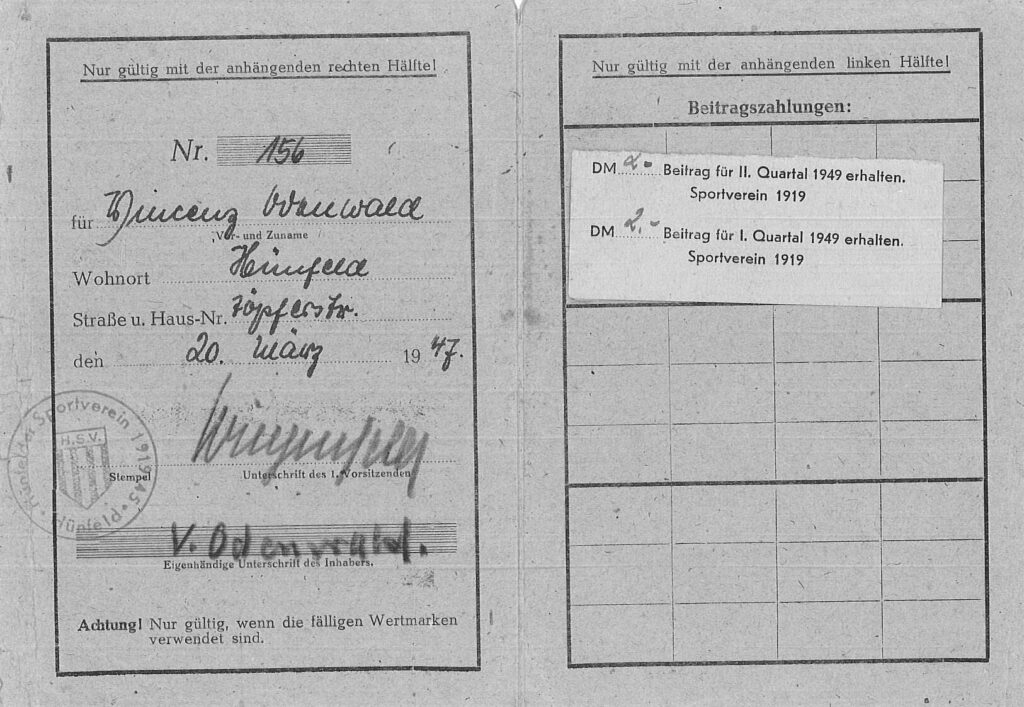 Nur gültig mit der anhängenden rechten Hälfte!
Nr. 156
für Vincenz Odenwald
Vor- und Zuname
Wohnort Hünfeld
Straße u. Haus-Nr. Töpferstr.
den 20. März 1947.
Hünfelder Sportverein 1919/45 · Hünfeld ·
H.S.V.
Stempel
Unterschrift des 1. Vorsitzenden
V. Odenwald.
Eigenhändige Unterschrift des Inhabers.
Achtung! Nur gültig, wenn die fälligen Wertmarken
verwendet sind.
Nur gültig mit der anhängenden linken Hälfte!
Beitragszahlungen:
DM 2.- Beitrag für II. Quartal 1949 erhalten.
Sportverein 1919
DM 2.- Beitrag für I. Quartal 1949 erhalten.
Sportverein 1919